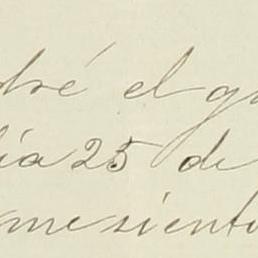 dré el gu
día 25 de
me siento